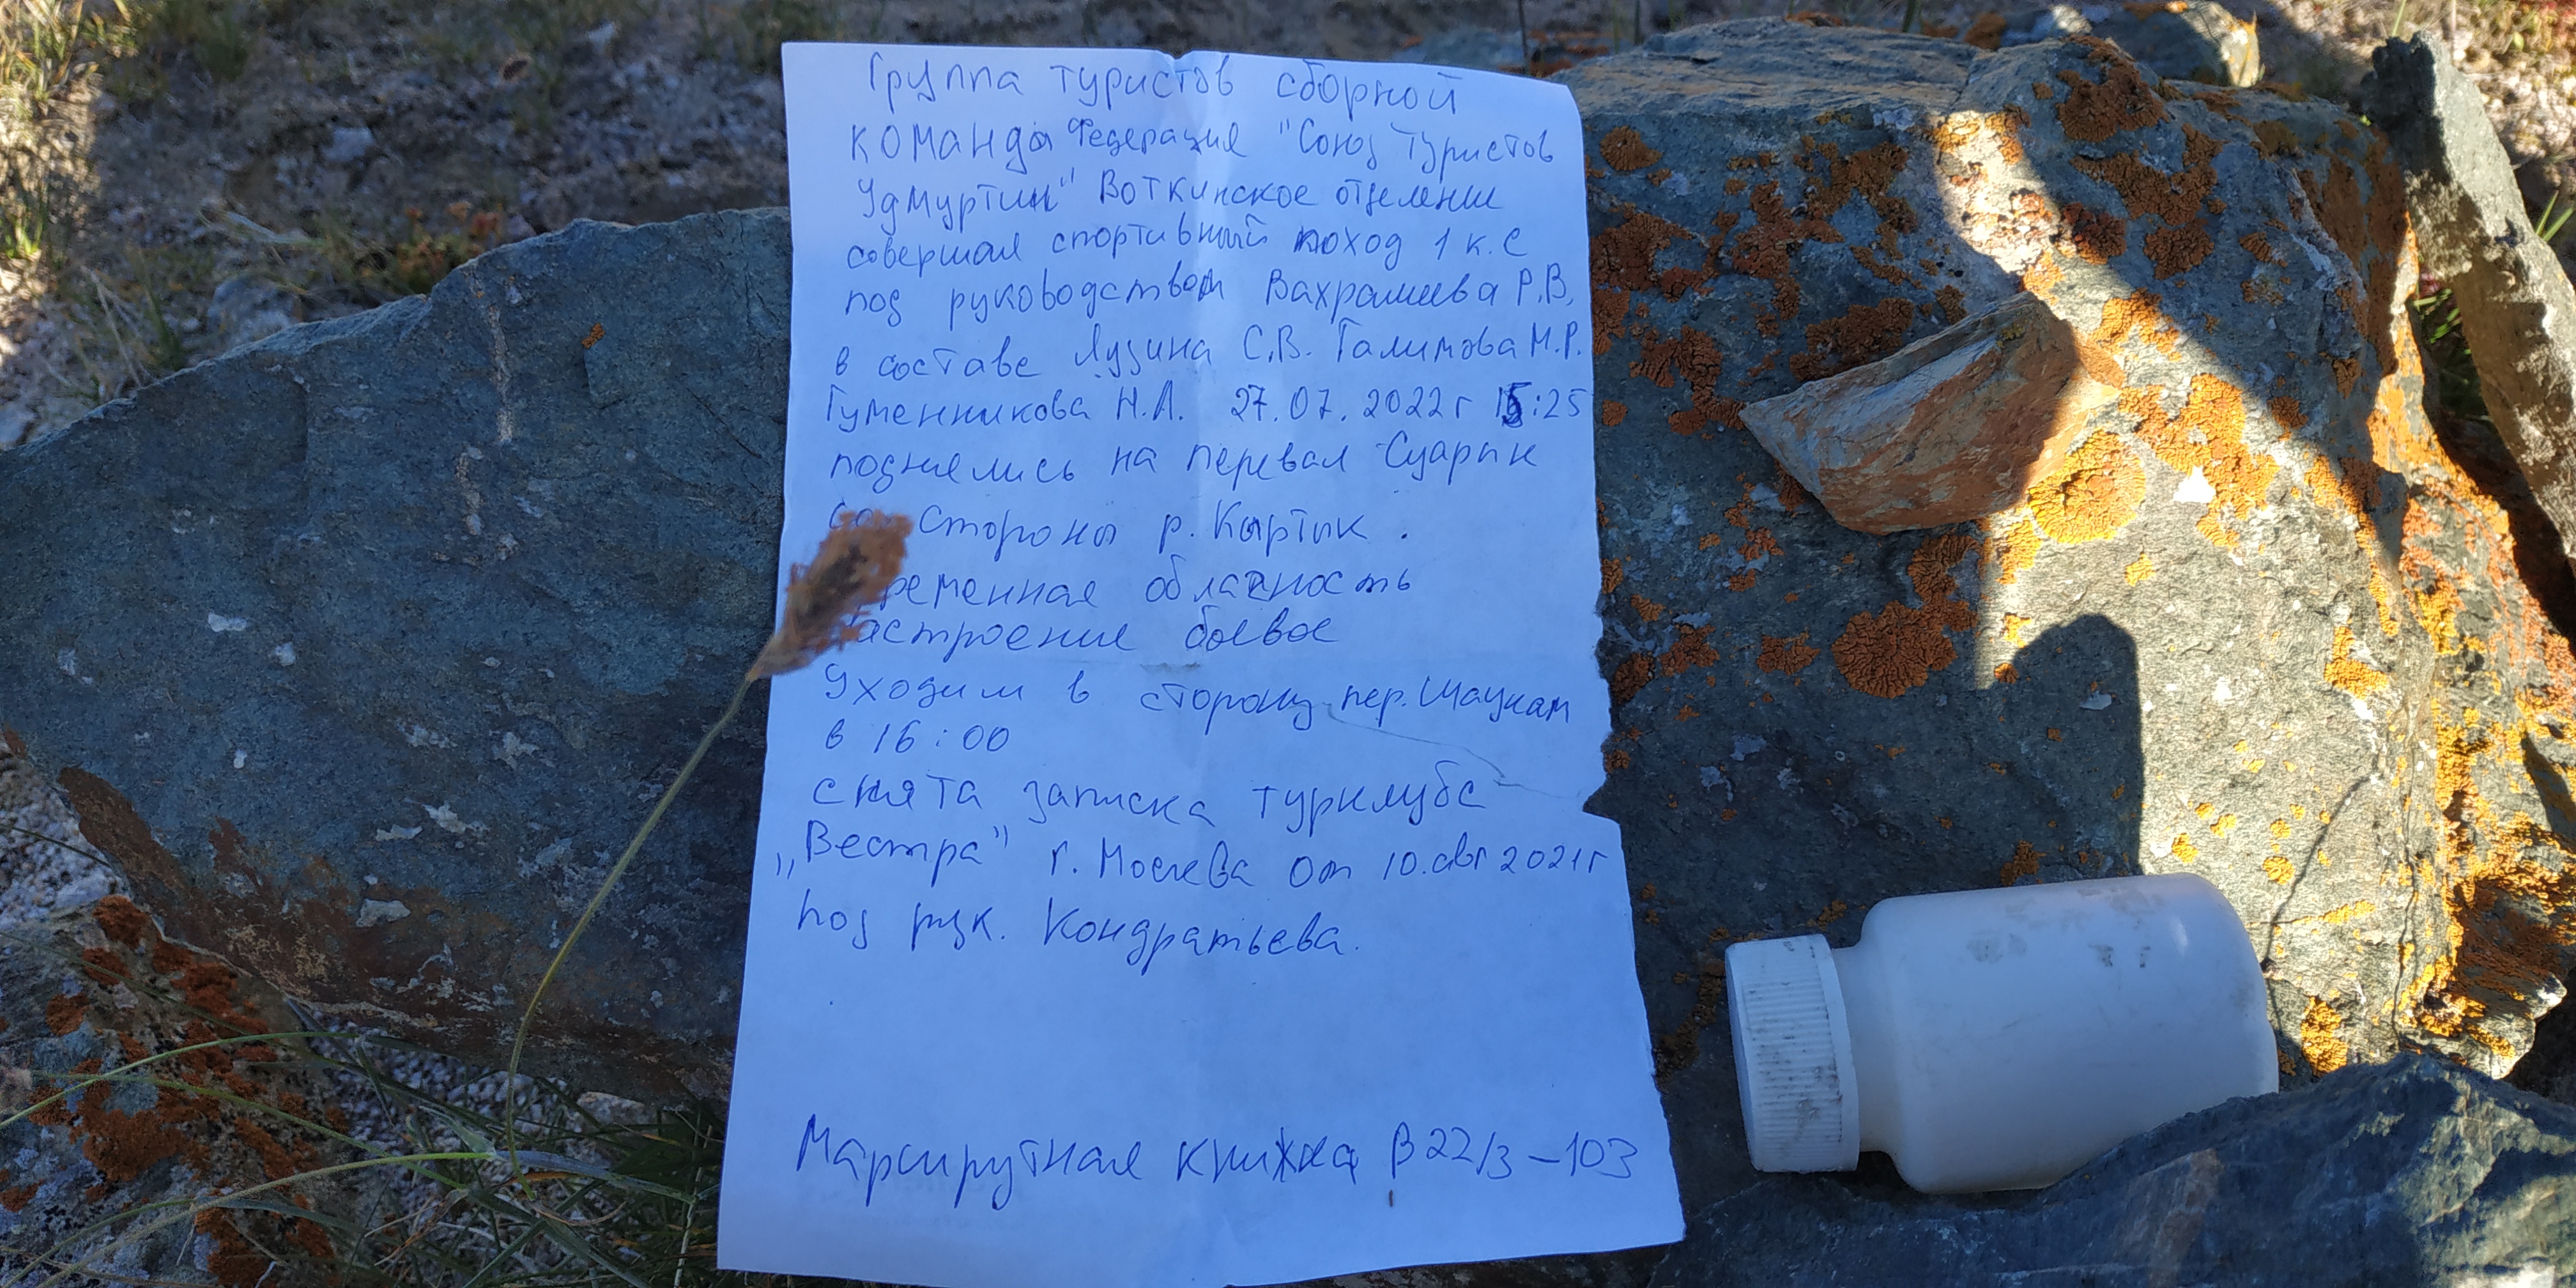 Группа туристов сборной
команды Федерация "Союз Туристов
Удмуртии" Воткинское отделение
совершая спортивный поход 1 к.с
под руководством Вахрамеева Р.В,
в составе Лузина С.В. Галимова М.Р.
Гуменникова Н.А. 27.07.2022г 15:25
поднялись на перевал Суарык
со стороны р. Кыртык.
ременная облачность
астроение боевое
Уходим в сторону пер. Шаукам
в 16:00
снята записка турклуба
„Вестра" г. Москва от 10.авг 2021г
под рук. Кондратьева.
Маршрутная книжка В22/3-103